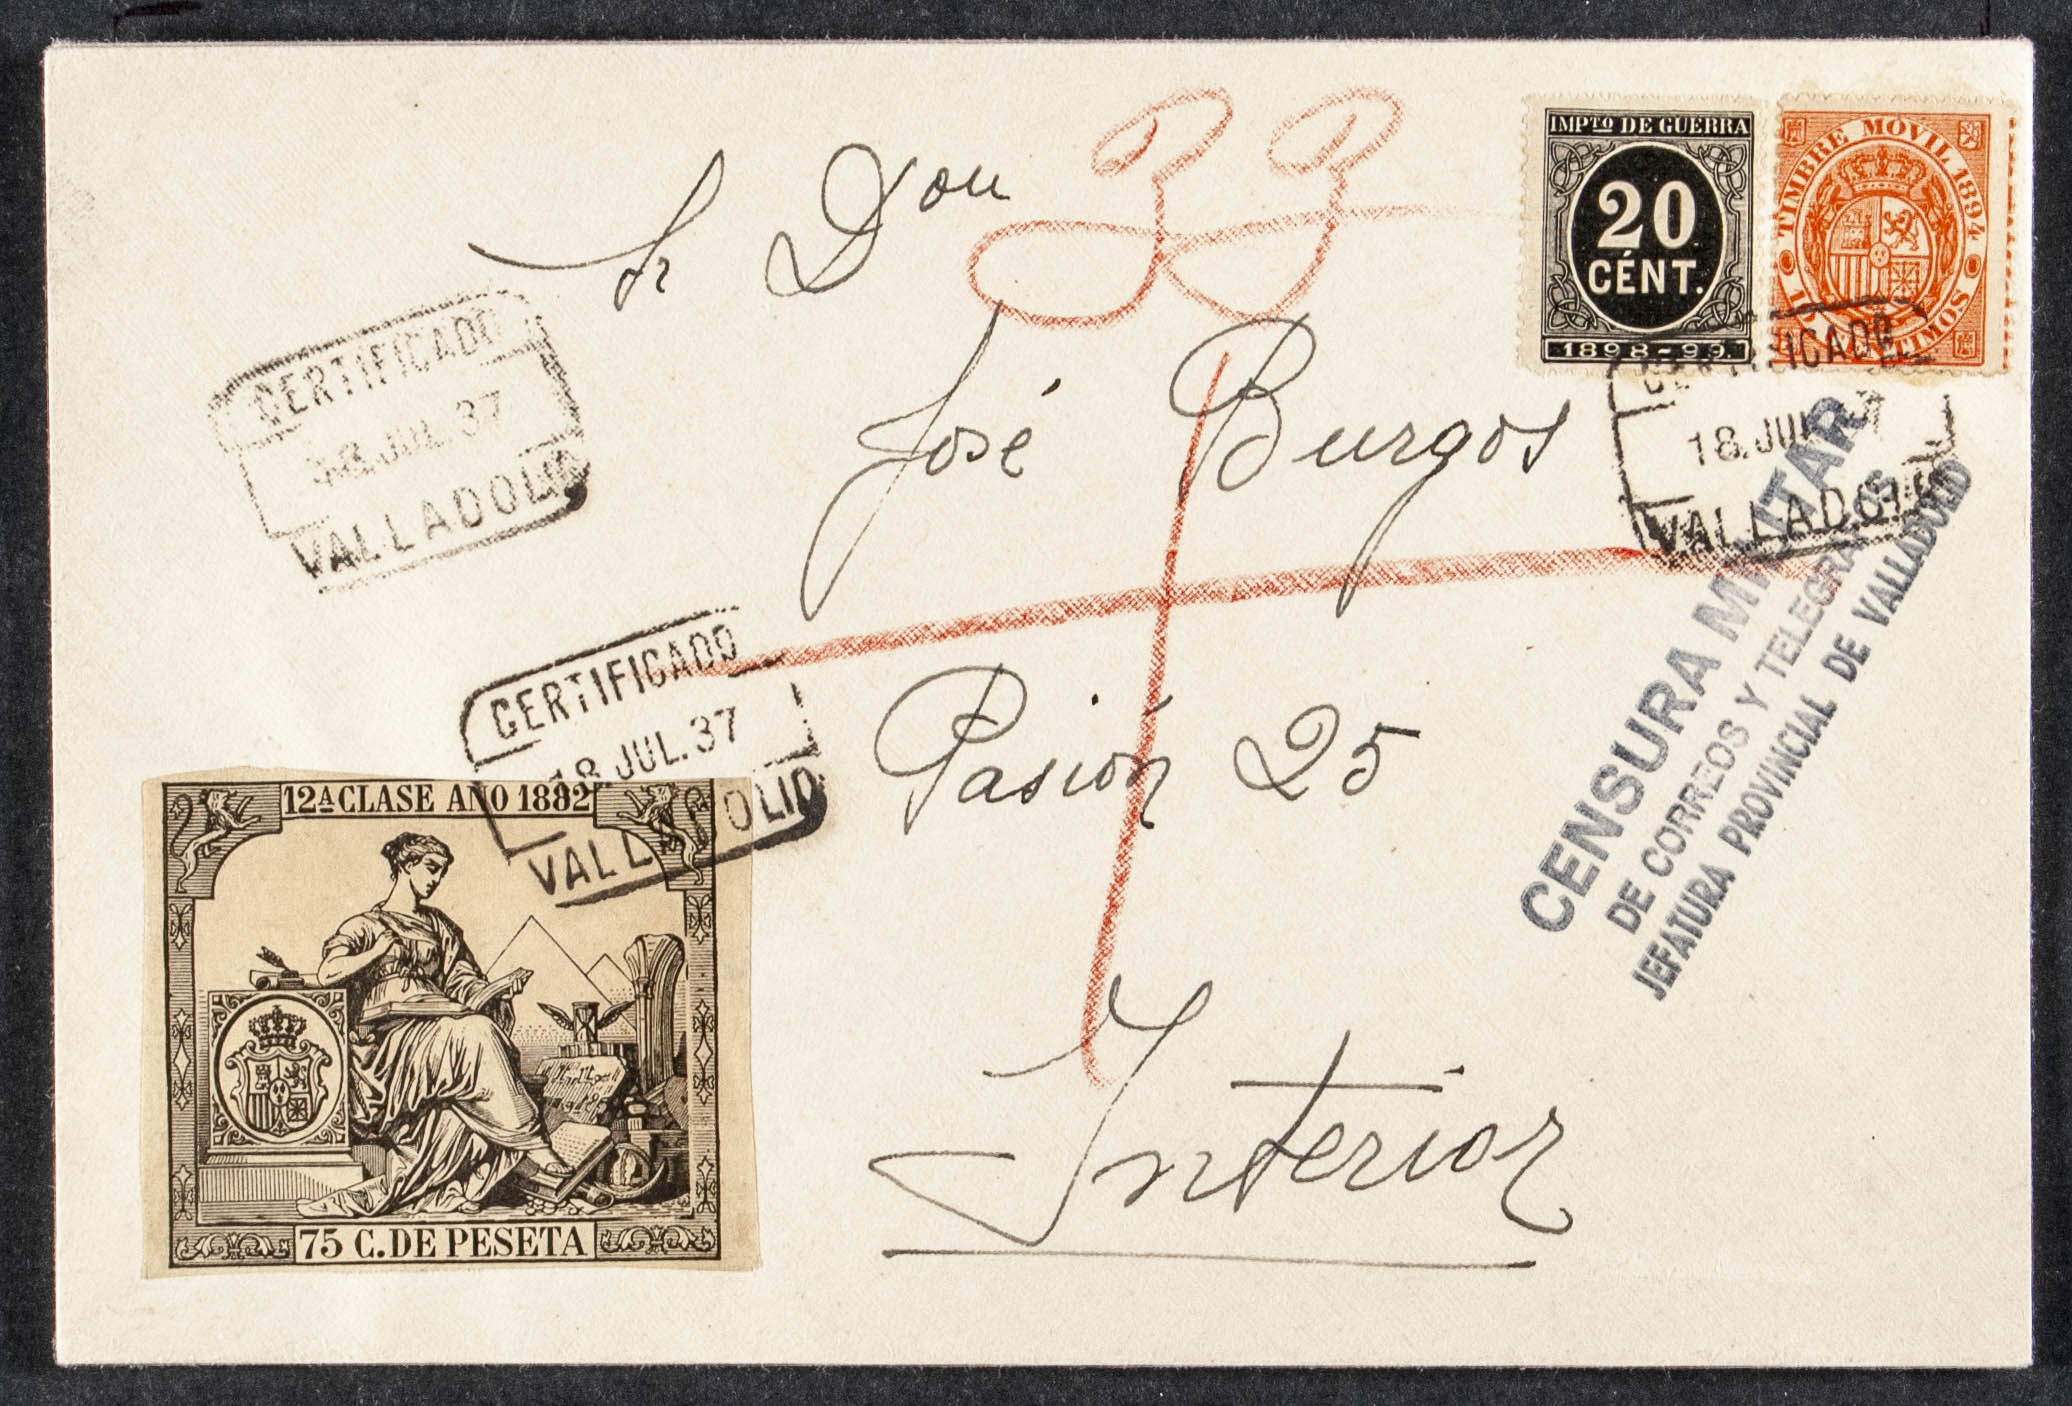 33
Sr Don
José Burgos
Pasión 25
Interior
IMPTO DE GUERRA
20
CÉNT.
1898-99.
TIMBRE MÓVIL 1894
CERTIFICADO
18.JUL.37
VALLADOLID
CERTIFICADO
18.JUL.37
VALLADOLID
CERTIFICADO
18 JUL.37
VALLADOLID
CENSURA MILITAR
DE CORREOS Y TELEGRAFOS
JEFATURA PROVINCIAL DE VALLADOLID
12A CLASE AÑO 1882
75 C. DE PESETA